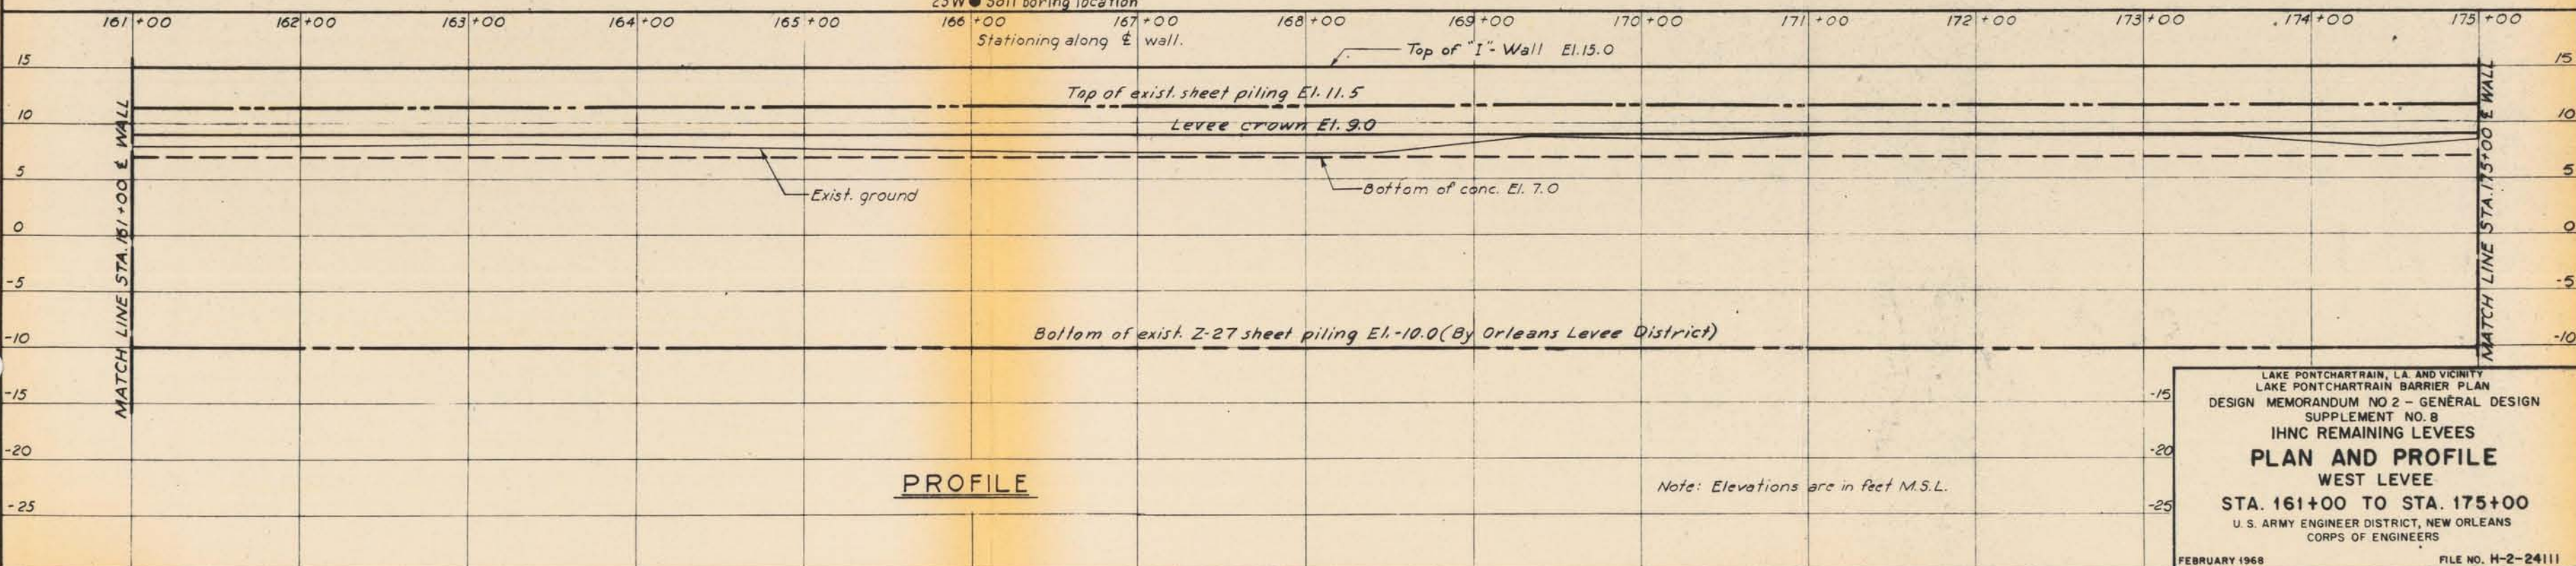 25W ● Soil boring location
161+00 162+00 163+00 164+00 165+00 166+00 167+00 168+00 169+00 170+00 171+00 172+00 173+00 174+00 175+00
Stationing along ℄ wall.
Top of "I"- Wall El.15.0
15 15
Top of exist. sheet piling El. 11.5
10 10
Levee crown El. 9.0
5 5
Exist. ground
Bottom of conc. El. 7.0
0 0
-5 -5
Bottom of exist. Z-27 sheet piling El.-10.0 (By Orleans Levee District)
-10 -10
-15 -15
-20 -20
-25 -25
MATCH LINE STA. 161+00 ℄ WALL
MATCH LINE STA. 175+00 ℄ WALL
PROFILE
Note: Elevations are in feet M.S.L.
LAKE PONTCHARTRAIN, LA. AND VICINITY
LAKE PONTCHARTRAIN BARRIER PLAN
DESIGN MEMORANDUM NO 2 – GENERAL DESIGN
SUPPLEMENT NO. 8
IHNC REMAINING LEVEES
PLAN AND PROFILE
WEST LEVEE
STA. 161+00 TO STA. 175+00
U. S. ARMY ENGINEER DISTRICT, NEW ORLEANS
CORPS OF ENGINEERS
FEBRUARY 1968 FILE NO. H-2-24111